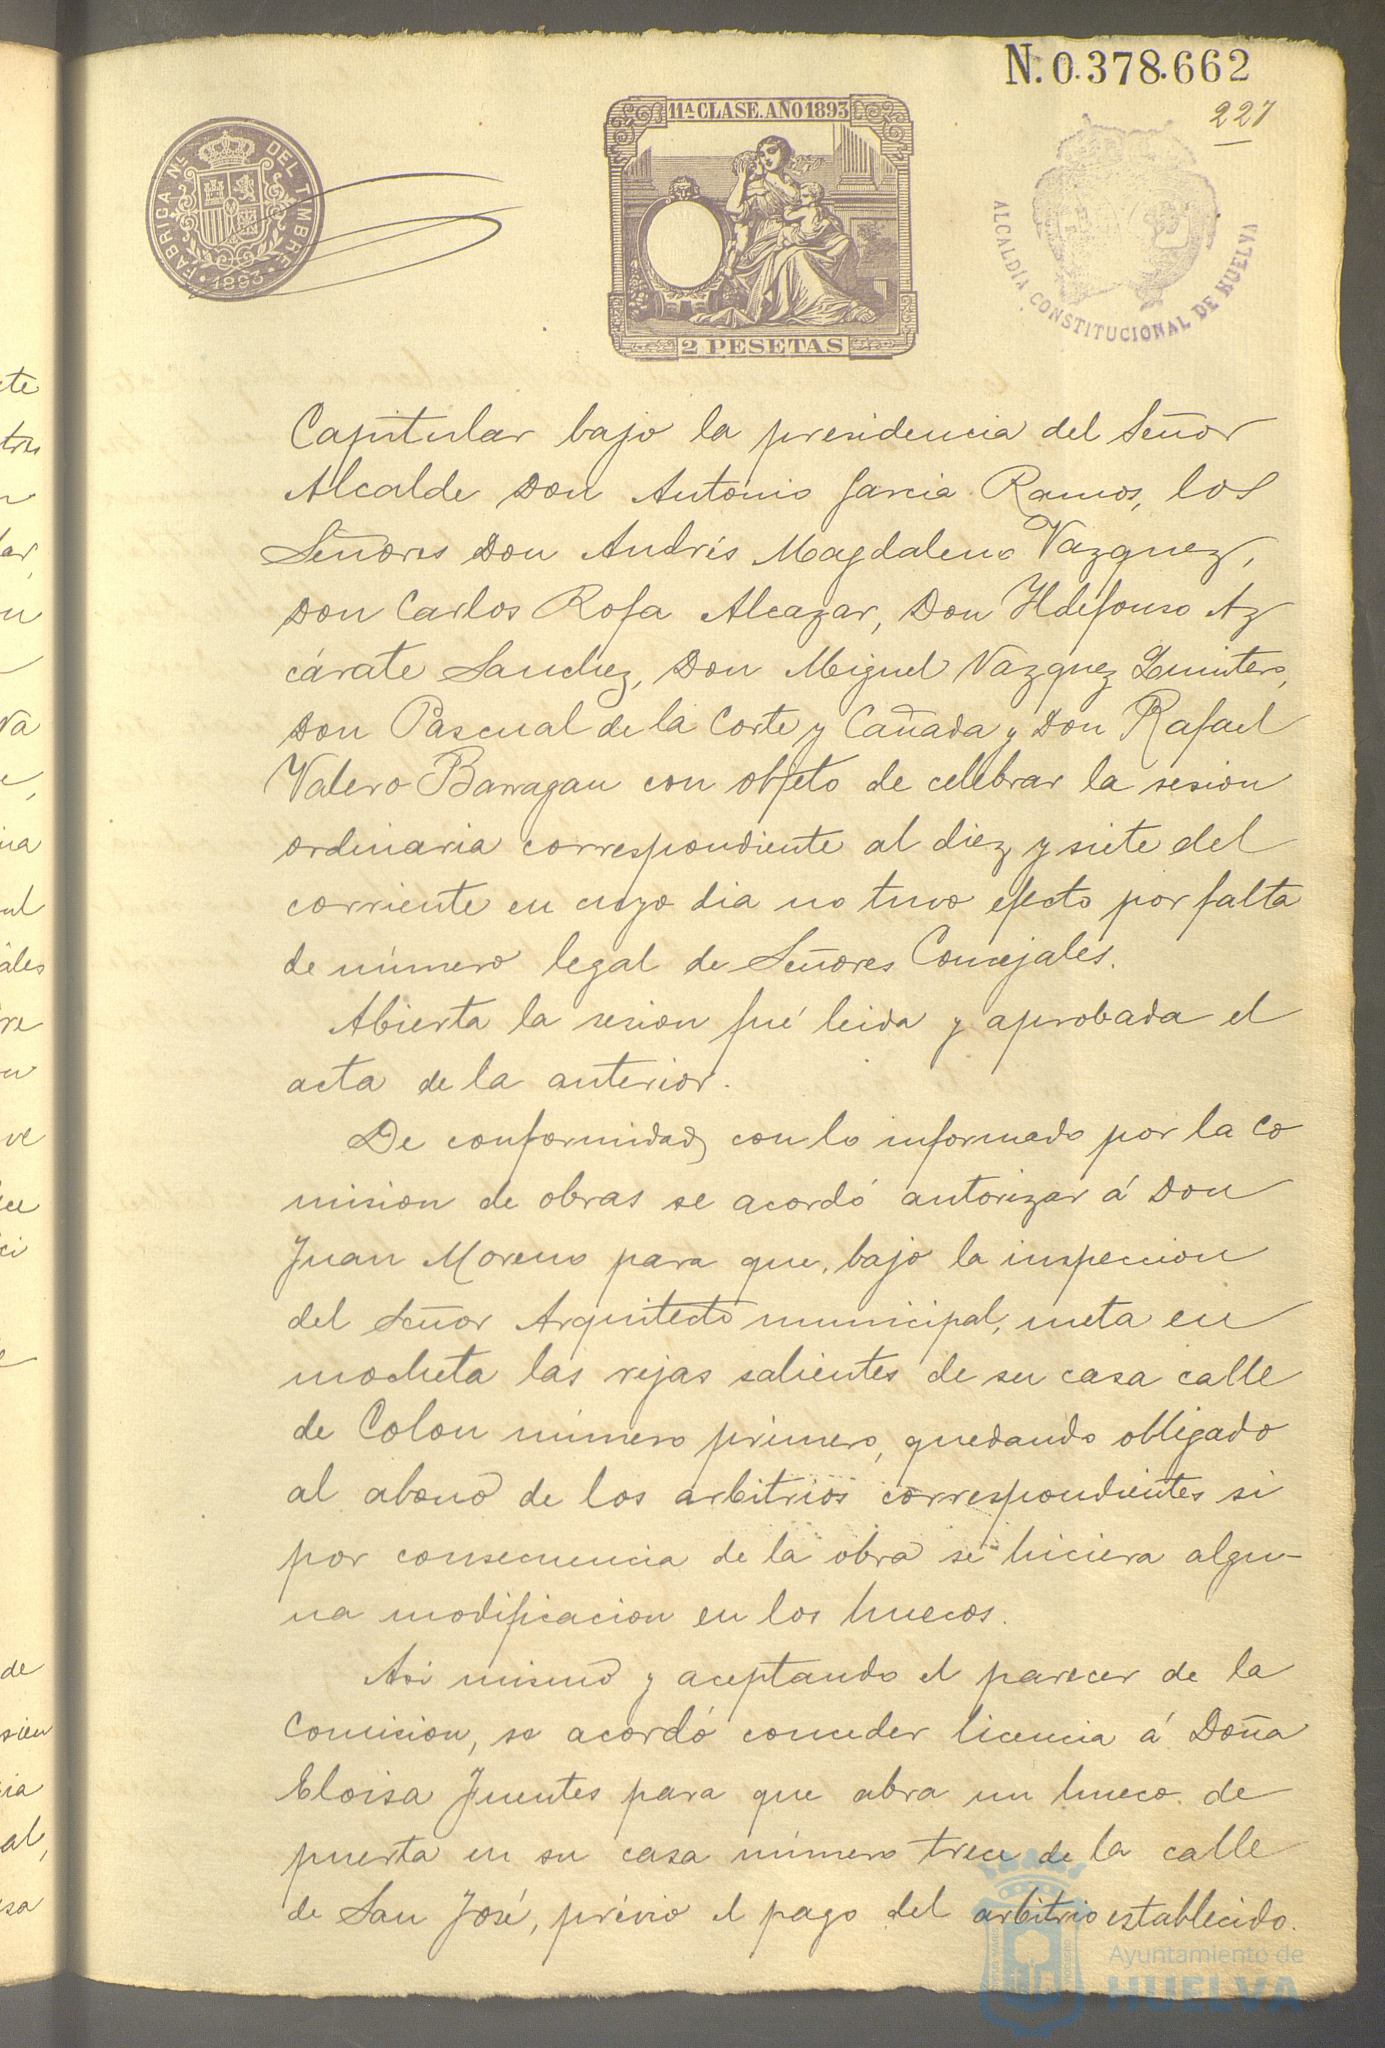 N. 0.378.662
227
FABRICA NL DEL TIMBRE
1893
11ª CLASE. AÑO 1893
2 PESETAS
ALCALDIA CONSTITUCIONAL DE HUELVA
Capitular bajo la presidencia del Señor
Alcalde Don Antonio Garcia Ramos, los
Señores Don Andrés Magdaleno Vazquez,
Don Carlos Rofa Alcazar, Don Ildefonso Az
cárate Sanchez, Don Miguel Vazquez Quintero,
Don Pascual de la Corte y Cañada y Don Rafael
Valero Barragan con objeto de celebrar la sesion
ordinaria correspondiente al diez y siete del
corriente en cuyo dia no tuvo efecto por falta
de número legal de Señores Concejales.
Abierta la sesion fué leida y aprobada el
acta de la anterior.
De conformidad con lo informado por la Co
mision de obras se acordó autorizar á Don
Juan Moreno para que, bajo la inspeccion
del Señor Arquitecto municipal, meta en
mocheta las rejas salientes de su casa calle
de Colon número primero, quedando obligado
al abono de los arbitrios correspondientes si
por consecuencia de la obra se hiciera algu-
na modificacion en los huecos.
Asi mismo y aceptando el parecer de la
Comision, se acordó conceder licencia á Doña
Eloisa Fuentes para que abra un hueco de
puerta en su casa número trece de la calle
de San José, prévio el pago del arbitrio establecido.
Ayuntamiento de
HUELVA